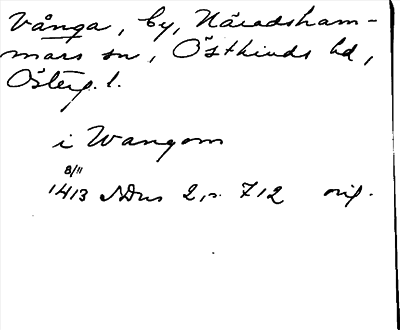 Vånga, by, Näradsham-
mars sn, Östkinds hd,
Österg. l.
i Wangom
8/11
1413 SDns 2, s. 712 orig.